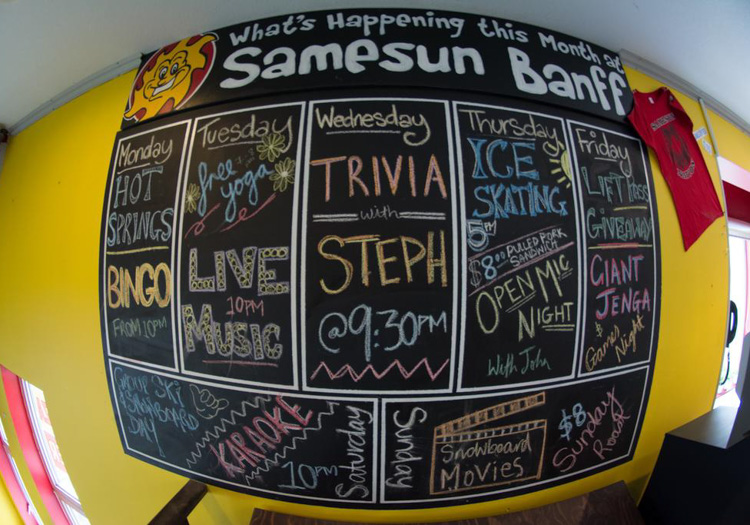 What's Happening this Month at
Samesun Banff
Monday
HOT
SPRINGS
BINGO
FROM 10PM
Tuesday
free
yoga
LIVE
10PM
MUSIC
Wednesday
TRIVIA
with
STEPH
@9:30PM
Thursday
ICE
SKATING
5PM
$8.00 PULLED PORK
SANDWICH
OPEN MIC
NIGHT
With John
Friday
LIFT PASS
GIVEAWAY
GIANT
JENGA
&
Games
Night
GROUP SKI
& SNOWBOARD
DAY
KARAOKE
10PM
Saturday
Sunday
Snowboard
MOVIES
$8
Sunday
Roast